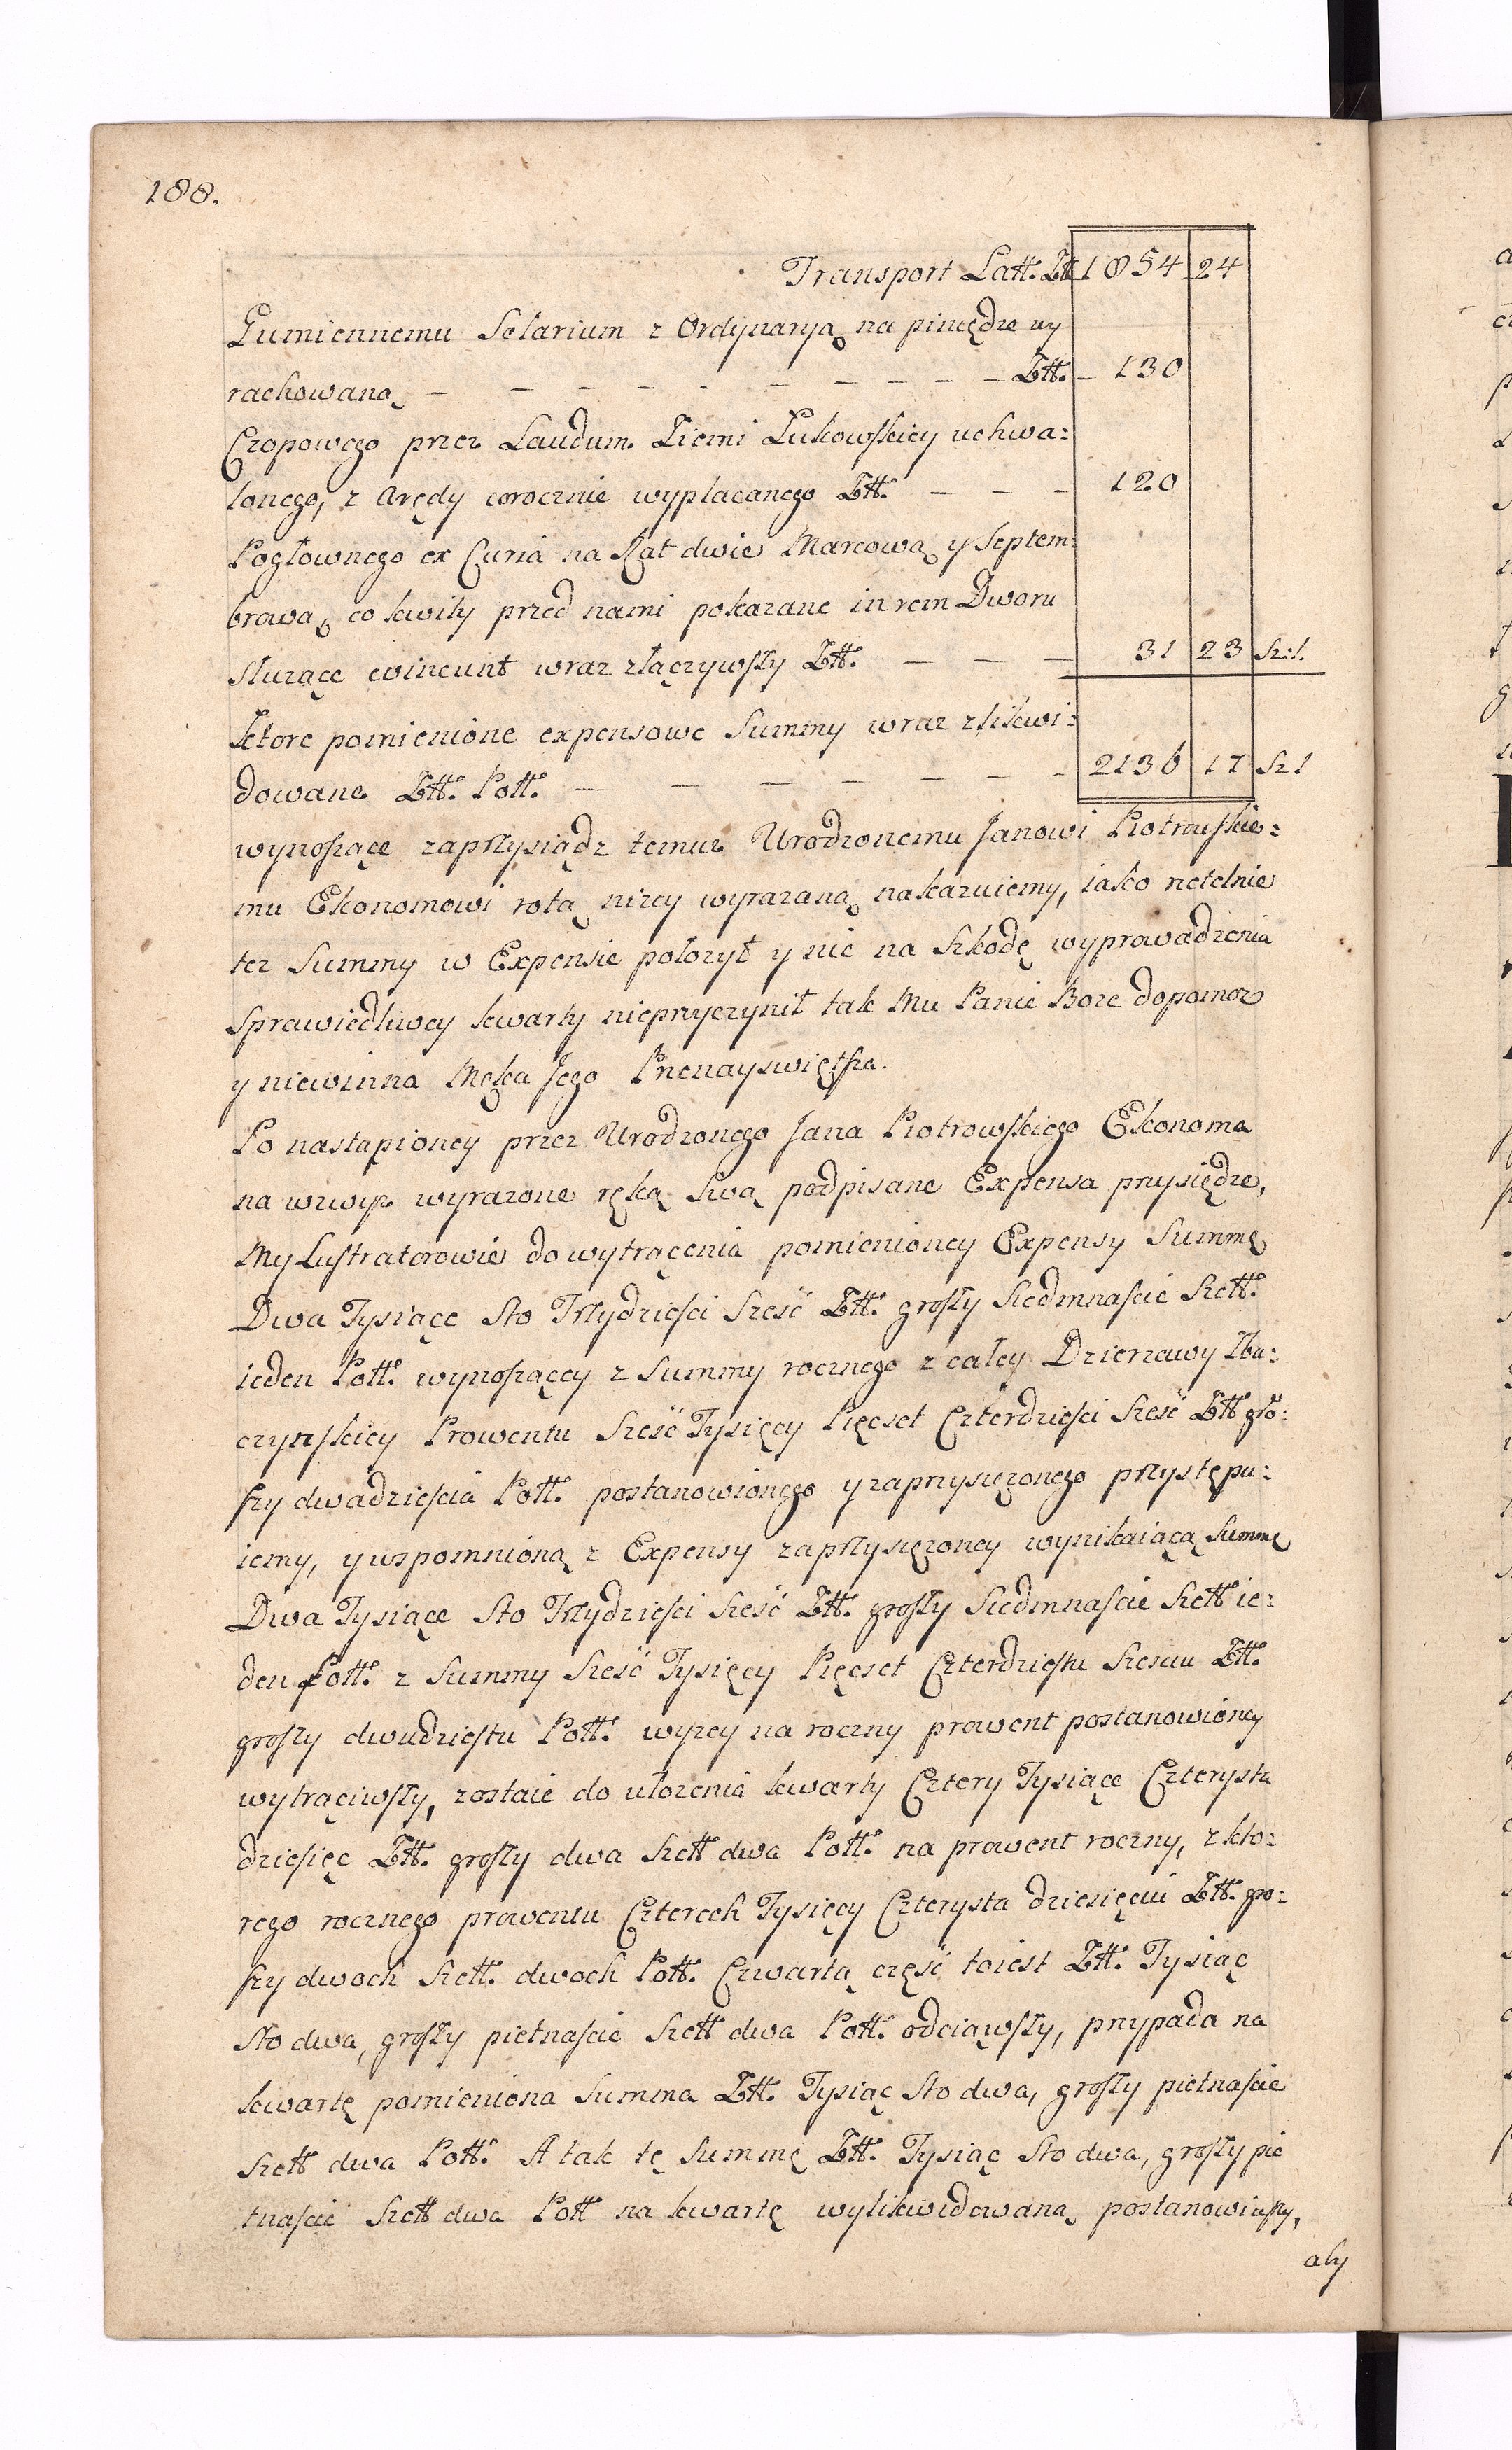 188.
Transport Latt. Ztt 1854 24
Gumiennemu Solarium z Ordynaryą na piniędze wy
rachowaną — — — — — — — — — Ztt. — 130
Czopowego przez Laudum Ziemi Łukowskiey uchwa:
lonego, z Arędy corocznie wypłacanego Ztt. — — — 120
Pogłownego ex Curia na Rat dwie Marcową y Septem:
browa, co kwity przed nami pokazane in rem Dworu
służące evincunt wraz złączywszy Ztt. — — — 31 23 Sz: 1.
które pomienione expensowe Summy wraz zlikwi:
dowane Ztt. Poll. — — — — — — 2136 17 Sz 1
wynoszące zaprzysiądz temuż Urodzonemu Janowi Piotrowskie:
mu Ekonomowi rotą nizey wyrazaną nakazuiemy, iako rzetelnie
tez Summy w Expensie położył y nic na Szkodę wyprowadzenia
Sprawiedliwey kwarty nieprzyczynił tak Mu Panie Boze dopomoz
y niewinna Męka Jego Przenayswiętsza.
Po nastąpioney przez Urodzonego Jana Piotrowskiego Ekonoma
na wzwyz wyrazone ręką Swą podpisane Expensa przysiędze,
My Lustratorowie do wytrącenia pomienioney Expensy Summę
Dwa Tysiące Sto Trzydziesci Szesć Ztt. groszy Siedmnascie Szell.
ieden Poll. wynoszącey z Summy rocznego z całey Dzierzawy Zbu:
czynskiey Prowentu Szesć Tysięcy Pięcset Czterdziesci Szesć Ztt gro:
szy dwadziescia Poll. postanowionego y zaprzysięzonego przystępu:
iemy, y wspomnioną z Expensy zaprzysięzoney wynikaiącą Summę
Dwa Tysiące Sto Trzydziesci Szesć Ztt. groszy Siedmnascie Szell ie:
den Poll. z Summy Szesć Tysięcy Pięcset Czterdziestu Szesciu Ztt.
groszy dwudziestu Poll. wyzey na roczny prowent postanowioney
wytrąciwszy, zostaie do ułozenia kwarty Cztery Tysiące Czterysta
dziesięc Ztt. groszy dwa Szell dwa Poll. na prowent roczny, z kto:
rego rocznego prowentu Czterech Tysięcy Czterysta dziesięciu Ztt. gro:
szy dwoch Szell. dwoch Poll. Czwartą część toiest Ztt. Tysiąc
Sto dwa, groszy pietnascie Szell dwa Poll. odciąwszy, przypada na
kwartę pomieniona Summa Ztt. Tysiąc Sto dwa, groszy pietnascie
Szell dwa Poll. A tak tę Summę Ztt. Tysiąc Sto dwa, groszy pie
tnascie Szell dwa Poll na kwartę wylikwidowaną postanowiwszy,
aby